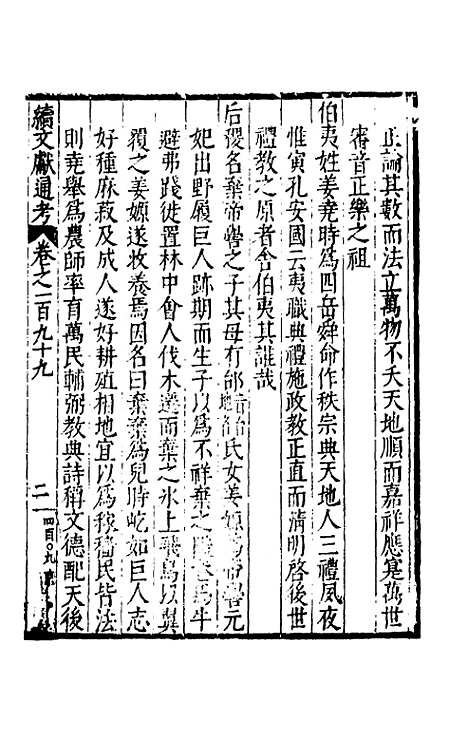 正論其數而法立萬物不夭天地順而嘉祥應寔萬世
審音正樂之祖
伯夷姓姜堯時為四岳舜命作秩宗典天地人三禮夙夜
惟寅孔安國云夷職典禮施政教正直而清明啓後世
禮教之原者舍伯夷其誰哉
后稷名棄帝嚳之子其母有邰氏女姜嫄為帝嚳元
妃出野履巨人跡期而生子以為不祥棄之隘巷馬牛
避弗踐徙置林中會人伐木遷而棄之氷上飛鳥以翼
覆之姜嫄遂收養焉因名曰棄棄為兒時屹如巨人志
好種麻菽及成人遂好耕殖相地宜以為稼穡民皆法
則堯舉為農師率育萬民輔弼教典詩稱文德配天後
續文獻通考 卷之二百九十九 二 四百〇九